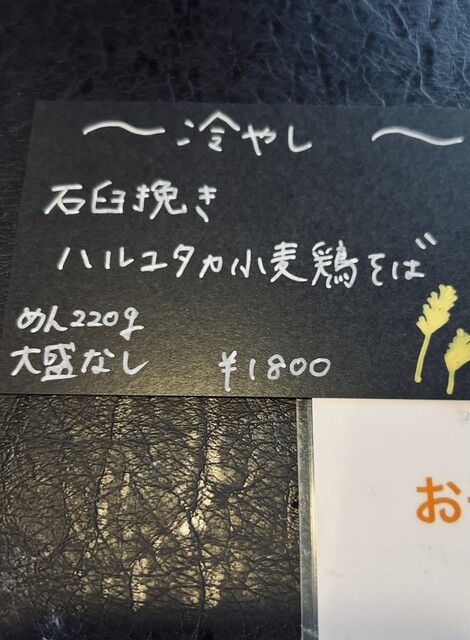 〜冷やし〜
石臼挽き
ハルユタカ小麦鶏そば
めん220g
大盛なし ¥1800
お